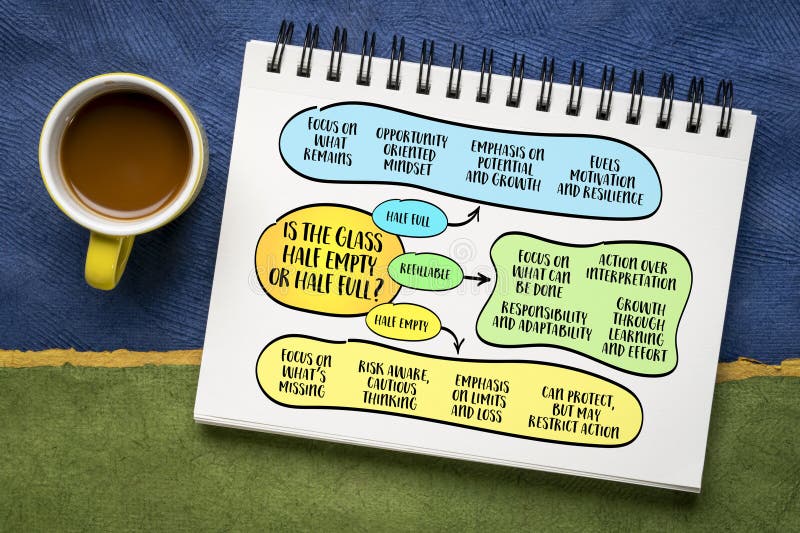 FOCUS ON
WHAT
REMAINS
OPPORTUNITY
ORIENTED
MINDSET
EMPHASIS ON
POTENTIAL
AND GROWTH
FUELS
MOTIVATION
AND RESILIENCE
HALF FULL
IS THE GLASS
HALF EMPTY
OR HALF FULL?
REFILLABLE
HALF EMPTY
FOCUS ON
WHAT CAN
BE DONE
ACTION OVER
INTERPRETATION
RESPONSIBILITY
AND ADAPTABILITY
GROWTH
THROUGH
LEARNING
AND EFFORT
FOCUS ON
WHAT'S
MISSING
RISK AWARE,
CAUTIOUS
THINKING
EMPHASIS
ON LIMITS
AND LOSS
CAN PROTECT,
BUT MAY
RESTRICT ACTION